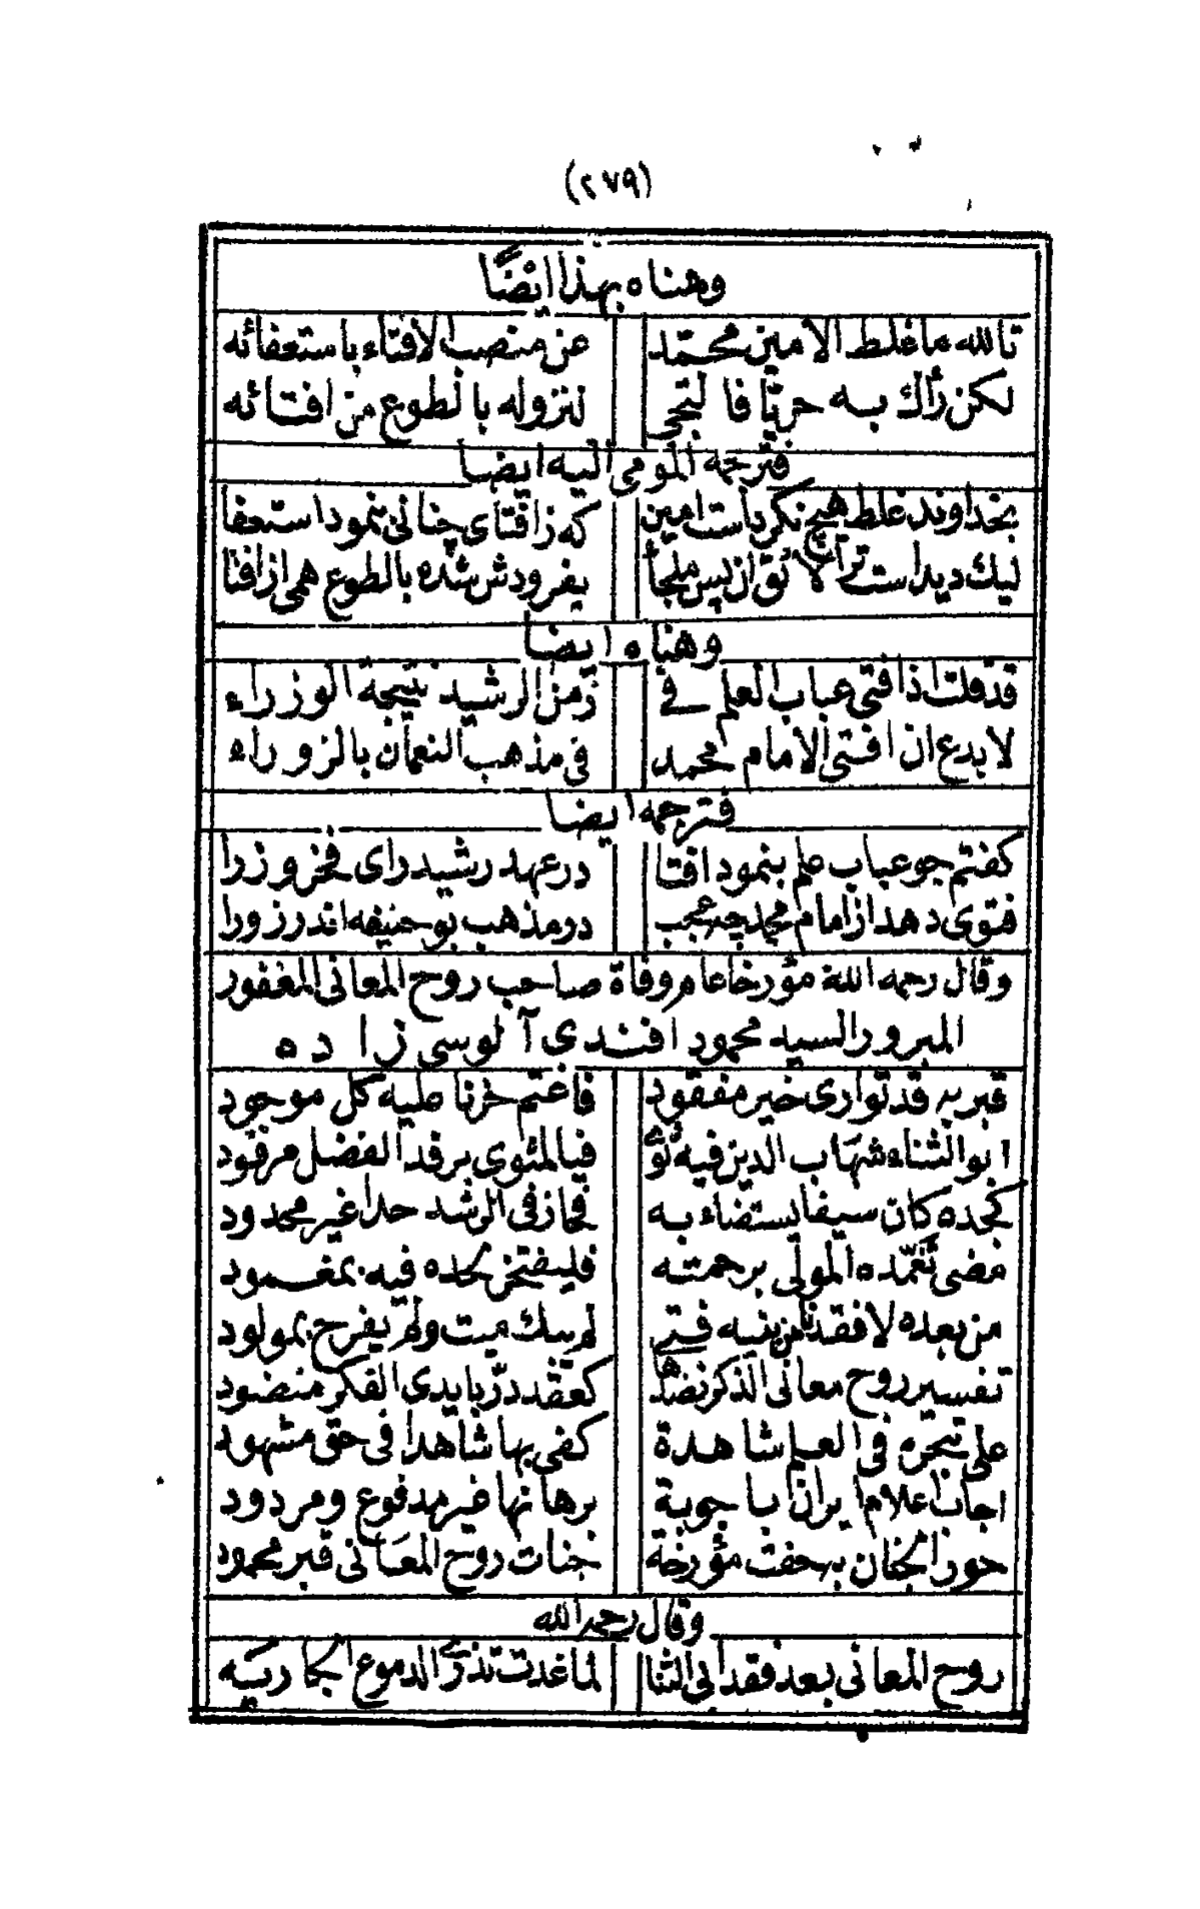 (٢٧٩)
وهناه بهذا ايضًا
تالله ما غلط الامين محمّد عن منصب الافتاء باستعفائه
لكن رأك به حريّا فالتجى لنزوله بالطوع من افتائه
فترجمه المومى اليه ايضا
بخداوند غلط هيچ نكرداست امين كه ز افتاى چنانى بنمود استعفا
ليك ديداست ترا لائق ازپس ملجأ بفرودش شده بالطوع همى از افتا
وهناه ايضا
قد قلت اذ افتى عباب العلم في زمن الرشيد نتيجة الوزراء
لا بدع ان افتى الامام محمد فى مذهب النعمان بالزوراء
فترجمه ايضا
كفتم جو عباب علم بنمود افتا در عهد رشيد راى فخر وزرا
فتوى دهد از امام محمد چه عجب در مذهب بو حنيفه اندر زورا
وقال رحمه الله مؤرخا عام وفاة صاحب روح المعانى المغفور
المبرور السيد محمود افندى آلوسى زاده
قبر به قد توارى خير مفقود فاغتم حزنا عليه كل موجود
ابو الثناء شهاب الدين فيه ثوى فيا لمثوى برفد الفضل مرفود
كجده كان سيفا يستضاء به فحاز فى الرشد حدا غير محدود
مضى تغمّده المولى برحمته فليفتخر لحده فيه بمغمود
من بعده لا فقدنا من بنيه فتى لم يبك ميت ولم يفرح بمولود
تفسير روح معانى الذكر نضدها كعقد درّ بايدى الفكر منضود
على تبحره فى العلم شاهدة كفى بها شاهدا فى حق مشهود
اجاب اعلام ايران باجوبة برهانها غير مدفوع ومردود
حور الجنان به حفت مؤرخة جنات روح المعانى قبر محمود
وقال رحمه الله
روح المعانى بعد فقد ابى الثنا لما غدت تذرى الدموع الجاريه